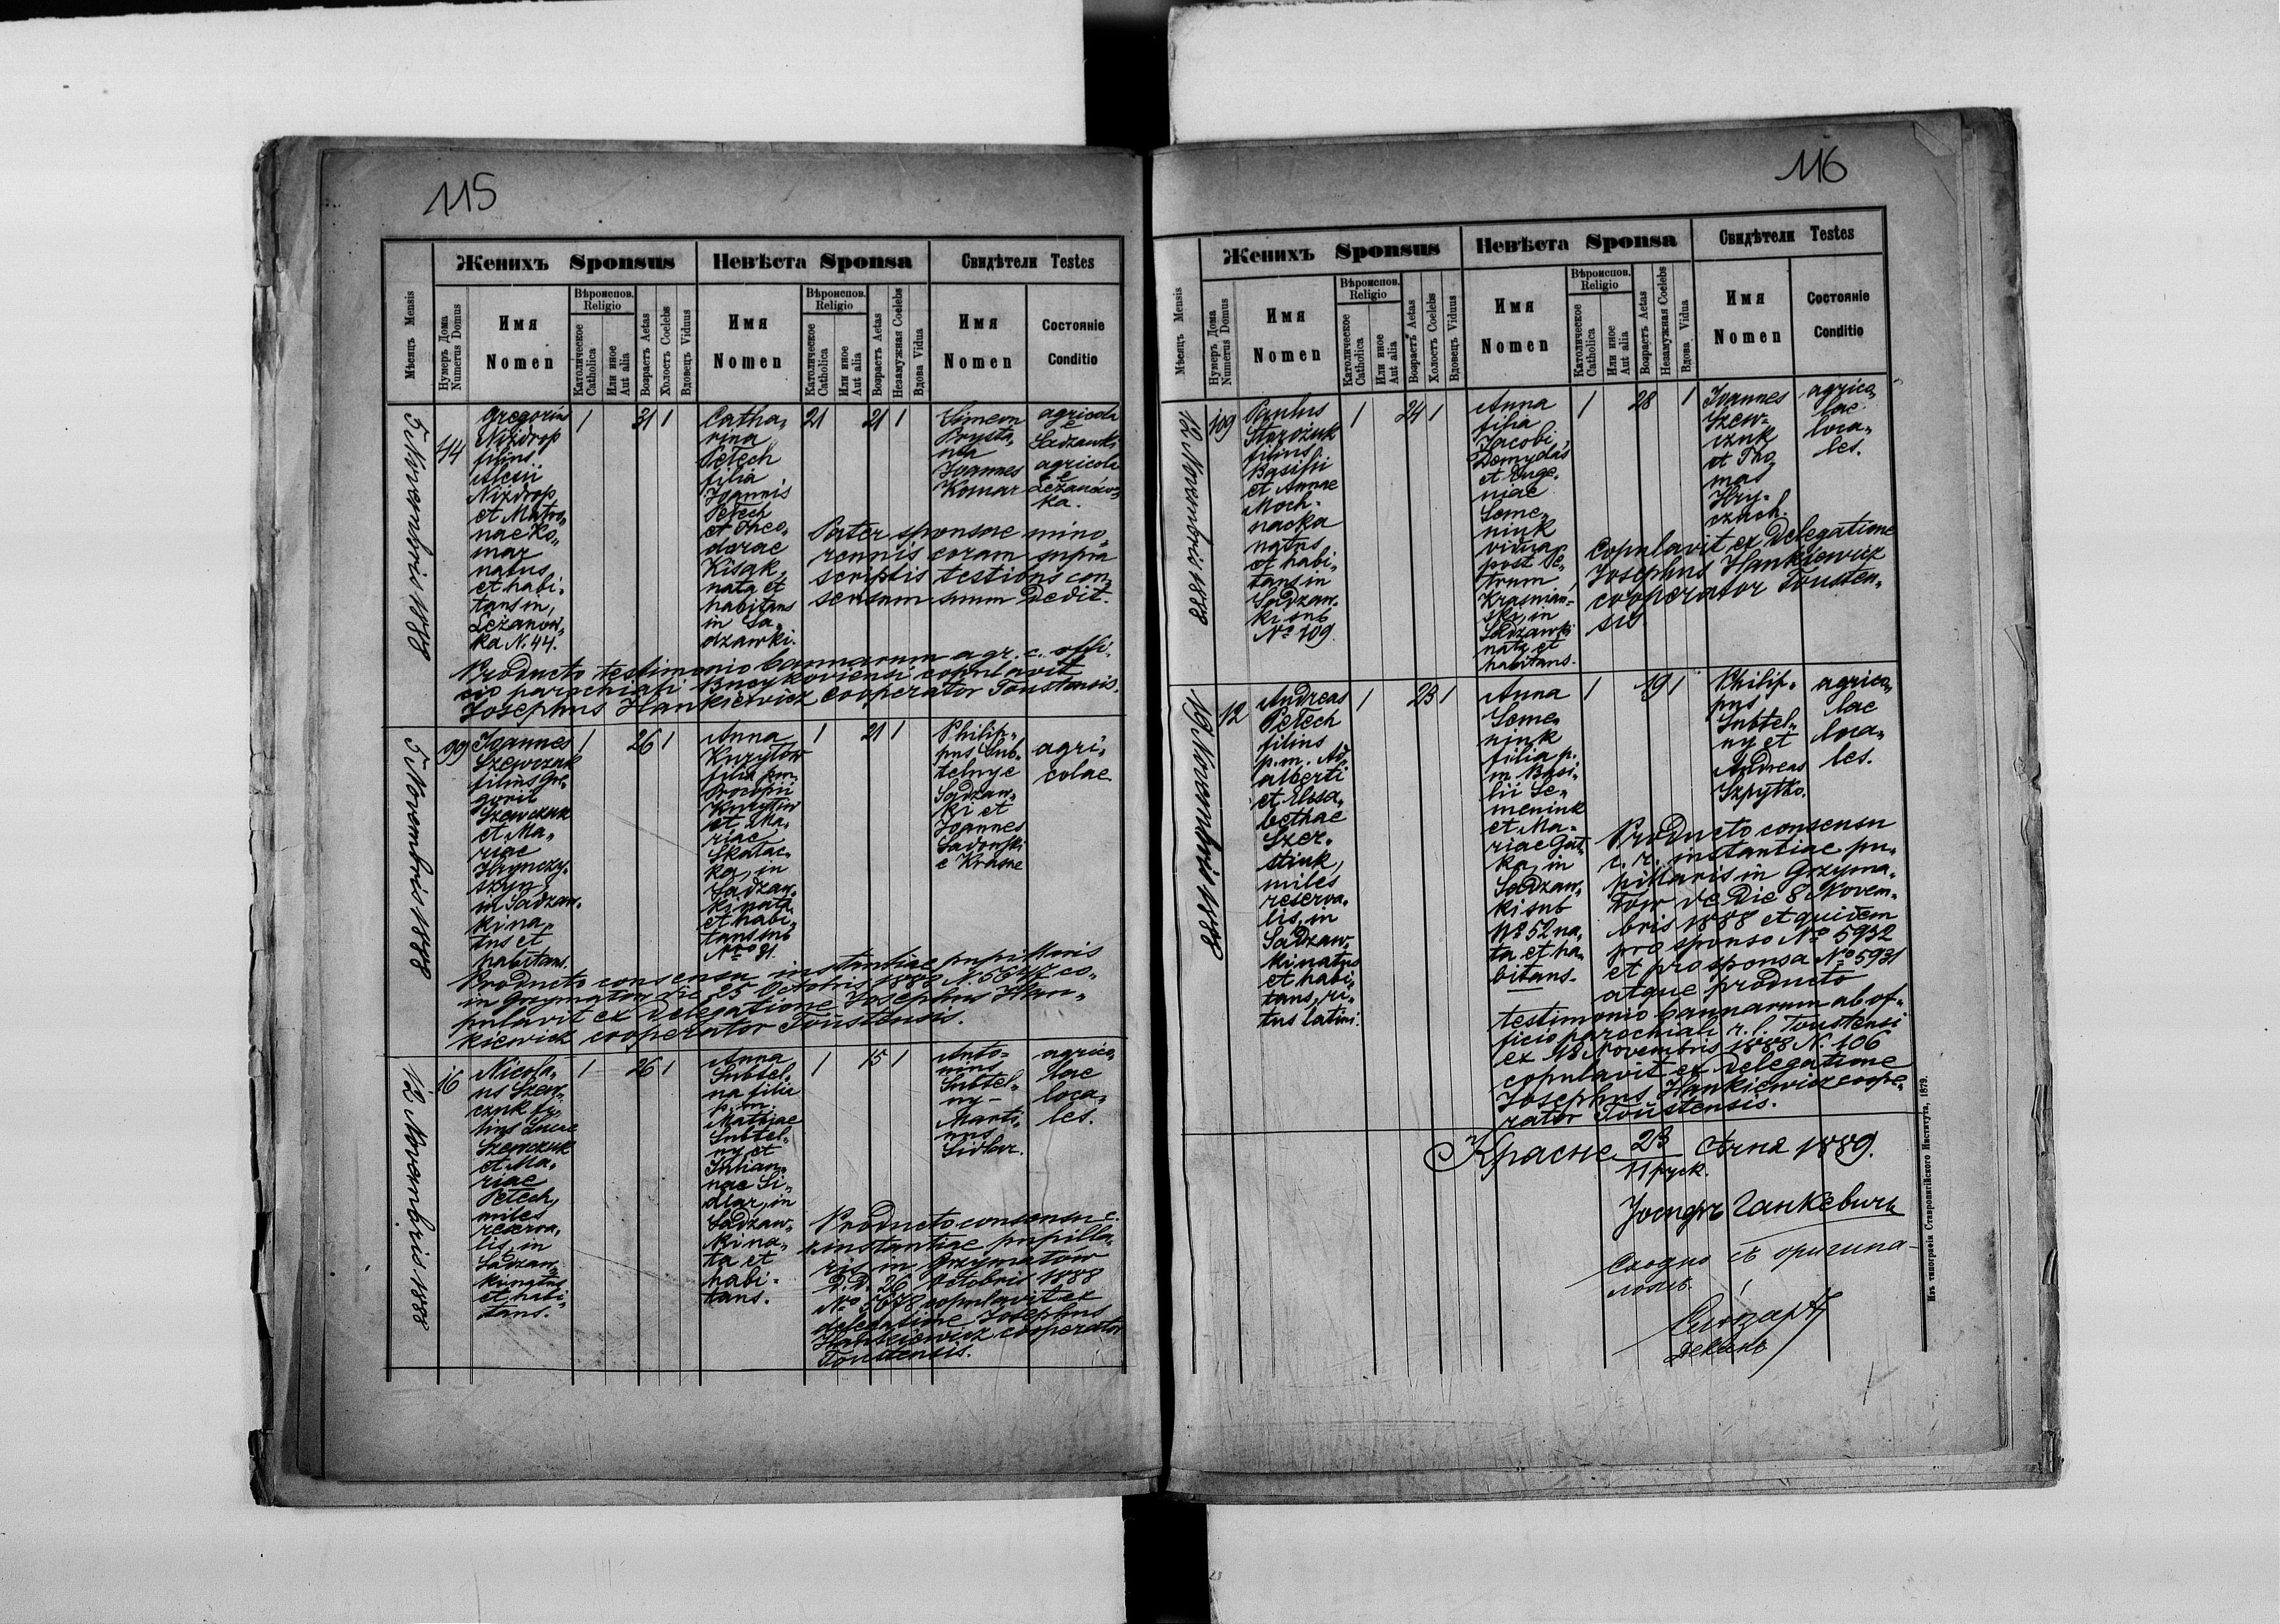 115
Женихъ Sponsus
Невѣста Sponsa
Свидѣтели Testes
Мѣсяцъ Mensis
Нумеръ Дома
Numerus Domus
Имя
Nomen
Вѣроиспов.
Religio
Католическое
Catholica
Или иное
Aut alia
Возрастъ Aetas
Холостъ Coelebs
Вдовецъ Viduus
Имя
Nomen
Вѣроиспов.
Religio
Католическое
Catholica
Или иное
Aut alia
Возрастъ Aetas
Незамужная Coelebs
Вдова Vidua
Имя
Nomen
Состояніе
Conditio
5 Novembris 1888
44
Gregorius
Nizdrop
filius
Alexii
Nizdrop
et Matro„
nae Ko„
mar
natus
et habi„
tans in
Leżanow„
ka N. 44.
1
31
1
Catha„
rina
Petech
filia
Joannis
Petech
et Theo„
dorae
Kisak
nata et
habitans
in Sa„
dzawki.
21
21
1
Simeon
Prysta„
Joannes
Komar
agricola
e
Sadzawk„
agricola
e
Leżanow„
ka.
Pater sponsae mino„
rennis coram supra
scriptis testibus con„
sensum suum dedit.
Producto testimonio bannorum a gr. c. offi„
cio parochiali copulavit
Josephus Hankiewicz cooperator Toustensis.
5 Novembris 1888
99
Joannes
Szewczuk
filius Gre„
gorii
Szewczuk
et Ma„
riae
Hrynczy„
szyn
in Sadzaw„
ki na„
tus et
habitans.
1
26
1
Anna
Kuryłów
filia p.m.
Procopii
Kuryłów
et Ma„
riae
Skałac„
ka, in
Sadzaw„
ki nata
et habi„
tans sub
No 31.
1
21
1
Philip„
pus Sub„
telny e
Sadzaw„
ki et
Joannes
Sadowski
e Krasne
agri„
colae
Producto consensu instantiae pupillaris
in Grzymałów die 25 Octobris 1888 N. 5647 co„
pulavit ex delegatione Josephus Han„
kiewicz cooperator Toustensis.
12 Novembris 1888
16
Nicola„
us Szew„
czuk fi„
lius Lucae
Szewczuk
et Ma„
riae
Petech,
miles
reserva„
lis, in
Sadzaw„
ki natus
et habi„
tans.
1
26
1
Anna
Subtel„
na filia
p. m.
Mathiae
Subtel„
ny et
Julian„
nae Si„
dlar, in
Sadzaw„
ki na„
ta et
habi„
tans.
1
15
1
Anto„
nius
Subtel„
ny –
Marti„
nus
Sidlar.
agrico„
lae
loca„
les.
Producto consensu c.
r. instantiae pupilla„
ris in Grzymałów
D. D. 26 Octobris 1888
No 5678 copulavit ex
delegatione Josephus
Hankiewicz cooperator
Toustensis.
116
Женихъ Sponsus
Невѣста Sponsa
Свидѣтели Testes
Мѣсяцъ Mensis
Нумеръ Дома
Numerus Domus
Имя
Nomen
Вѣроиспов.
Religio
Католическое
Catholica
Или иное
Aut alia
Возрастъ Aetas
Холостъ Coelebs
Вдовецъ Viduus
Имя
Nomen
Вѣроиспов.
Religio
Католическое
Catholica
Или иное
Aut alia
Возрастъ Aetas
Незамужная Coelebs
Вдова Vidua
Имя
Nomen
Состояніе
Conditio
12 Novembris 1888
109
Paulus
Starożuk
filius
Basilii
et Annae
Moch„
nacka
natus
et habi„
tans in
Sadzaw„
ki sub
No 109.
1
24
1
Anna
filia
Jacobi
Demydas
et Euge„
niae
Seme„
niuk
vidua
post Pe„
trum
Krasnian„
ski, in
Sadzawki
nata et
habitans.
1
28
1
Joannes
Szew„
czuk
et Tho„
mas
Hry„
czach.
agrico„
lae
loca„
les.
Copulavit ex Delegatione
Josephus Hankiewicz
cooperator Tousten„
sis
19 Novembris 1888
12
Andreas
Petech
filius
p. m. Ad„
alberti
et Elisa„
bethae
Szer„
stiuk,
miles
reserva„
lis, in
Sadzaw„
ki natus
et habi„
tans, ri„
tus latini.
1
23
1
Anna
Seme„
niuk
filia p.
m. Basi„
lii Se„
meniuk
et Ma„
riae Gut„
ka, in
Sadzaw„
ki sub
No 52 na„
ta et ha„
bitans.
1
19
1
Philip„
pus
Subtel„
ny et
Andreas
Szpytko.
agrico„
lae
loca„
les.
Producto consensu
c. r. instantiae pu„
pillaris in Grzyma„
łów de die 8 Novem„
bris 1888 et quidem
pro sponso No 5932
et pro sponsa No 5931
atque producto
testimonio bannorum ab of„
ficio parochiali r. l. Toustensi
ex 18 Novembris 1888 N. 106
copulavit ex delegatione
Josephus Hankiewicz coope„
rator Toustensis.
Красне 23/11 руск. 1889.
Іосифъ Ганкевичъ
Сходно съ оригина–
ломъ.
деканъ
Изъ типографіи Ставропигійского Института, 1879.